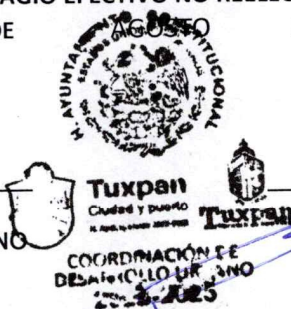 AGIO EFECTIVO NO REELE
DE AGOSTO
H. AYUNTAMIENTO CONSTITUCIONAL
Tuxpan
Ciudad y puerto
Tuxpan
NO
COORDINACIÓN DE
DESARROLLO URBANO
2025